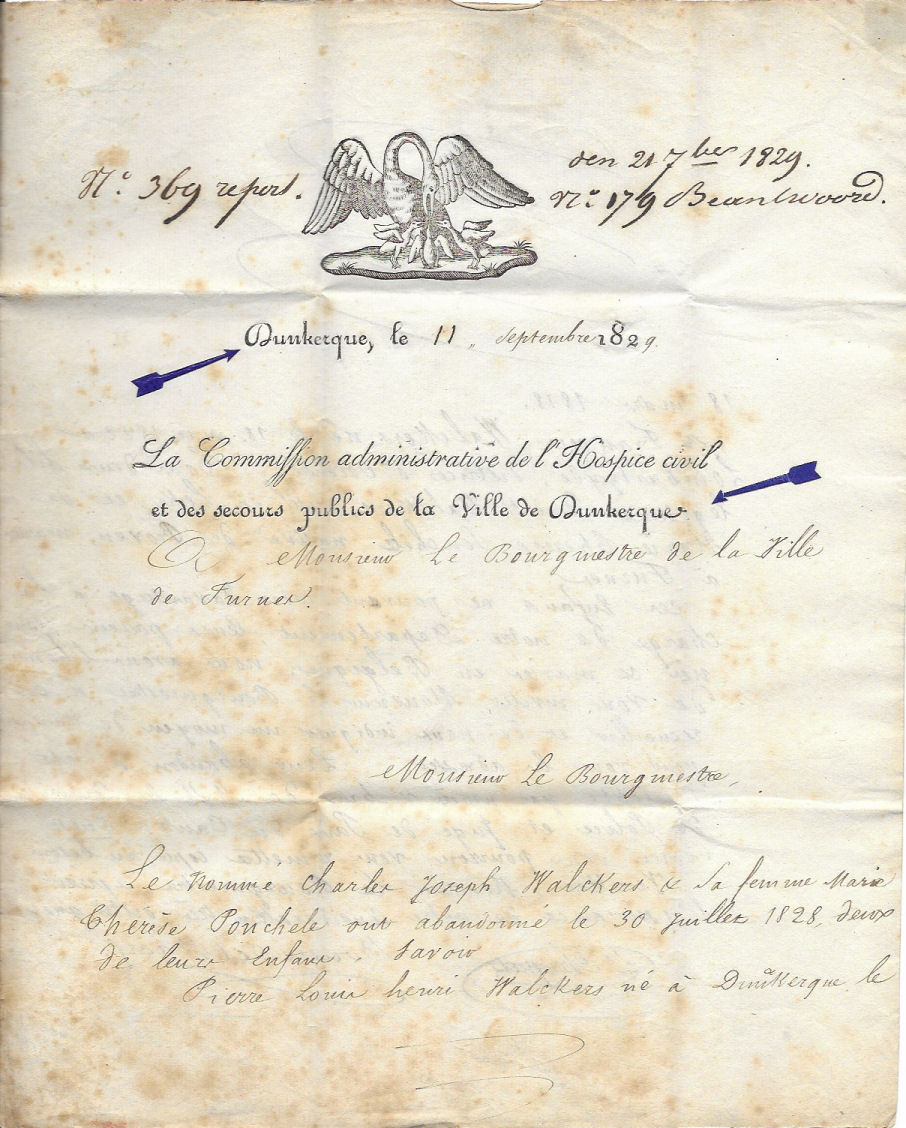 N.° 369 repert.
den 21 7ber 1829.
N.° 179 Beantwoord.
Dunkerque, le 11 septembre 1829.
La Commission administrative de l'Hospice civil
et des secours publics de la Ville de Dunkerque.
A Monsieur Le Bourgmestre de la Ville
de Furnes.
Monsieur Le Bourgmestre,
Le nommé Charles Joseph Walckers & Sa femme Marie
Thérèse Ponchele ont abandonné le 30 juillet 1828, deux
de leurs Enfans. Savoir
Pierre Louis henri Walckers né à Dunkerque le